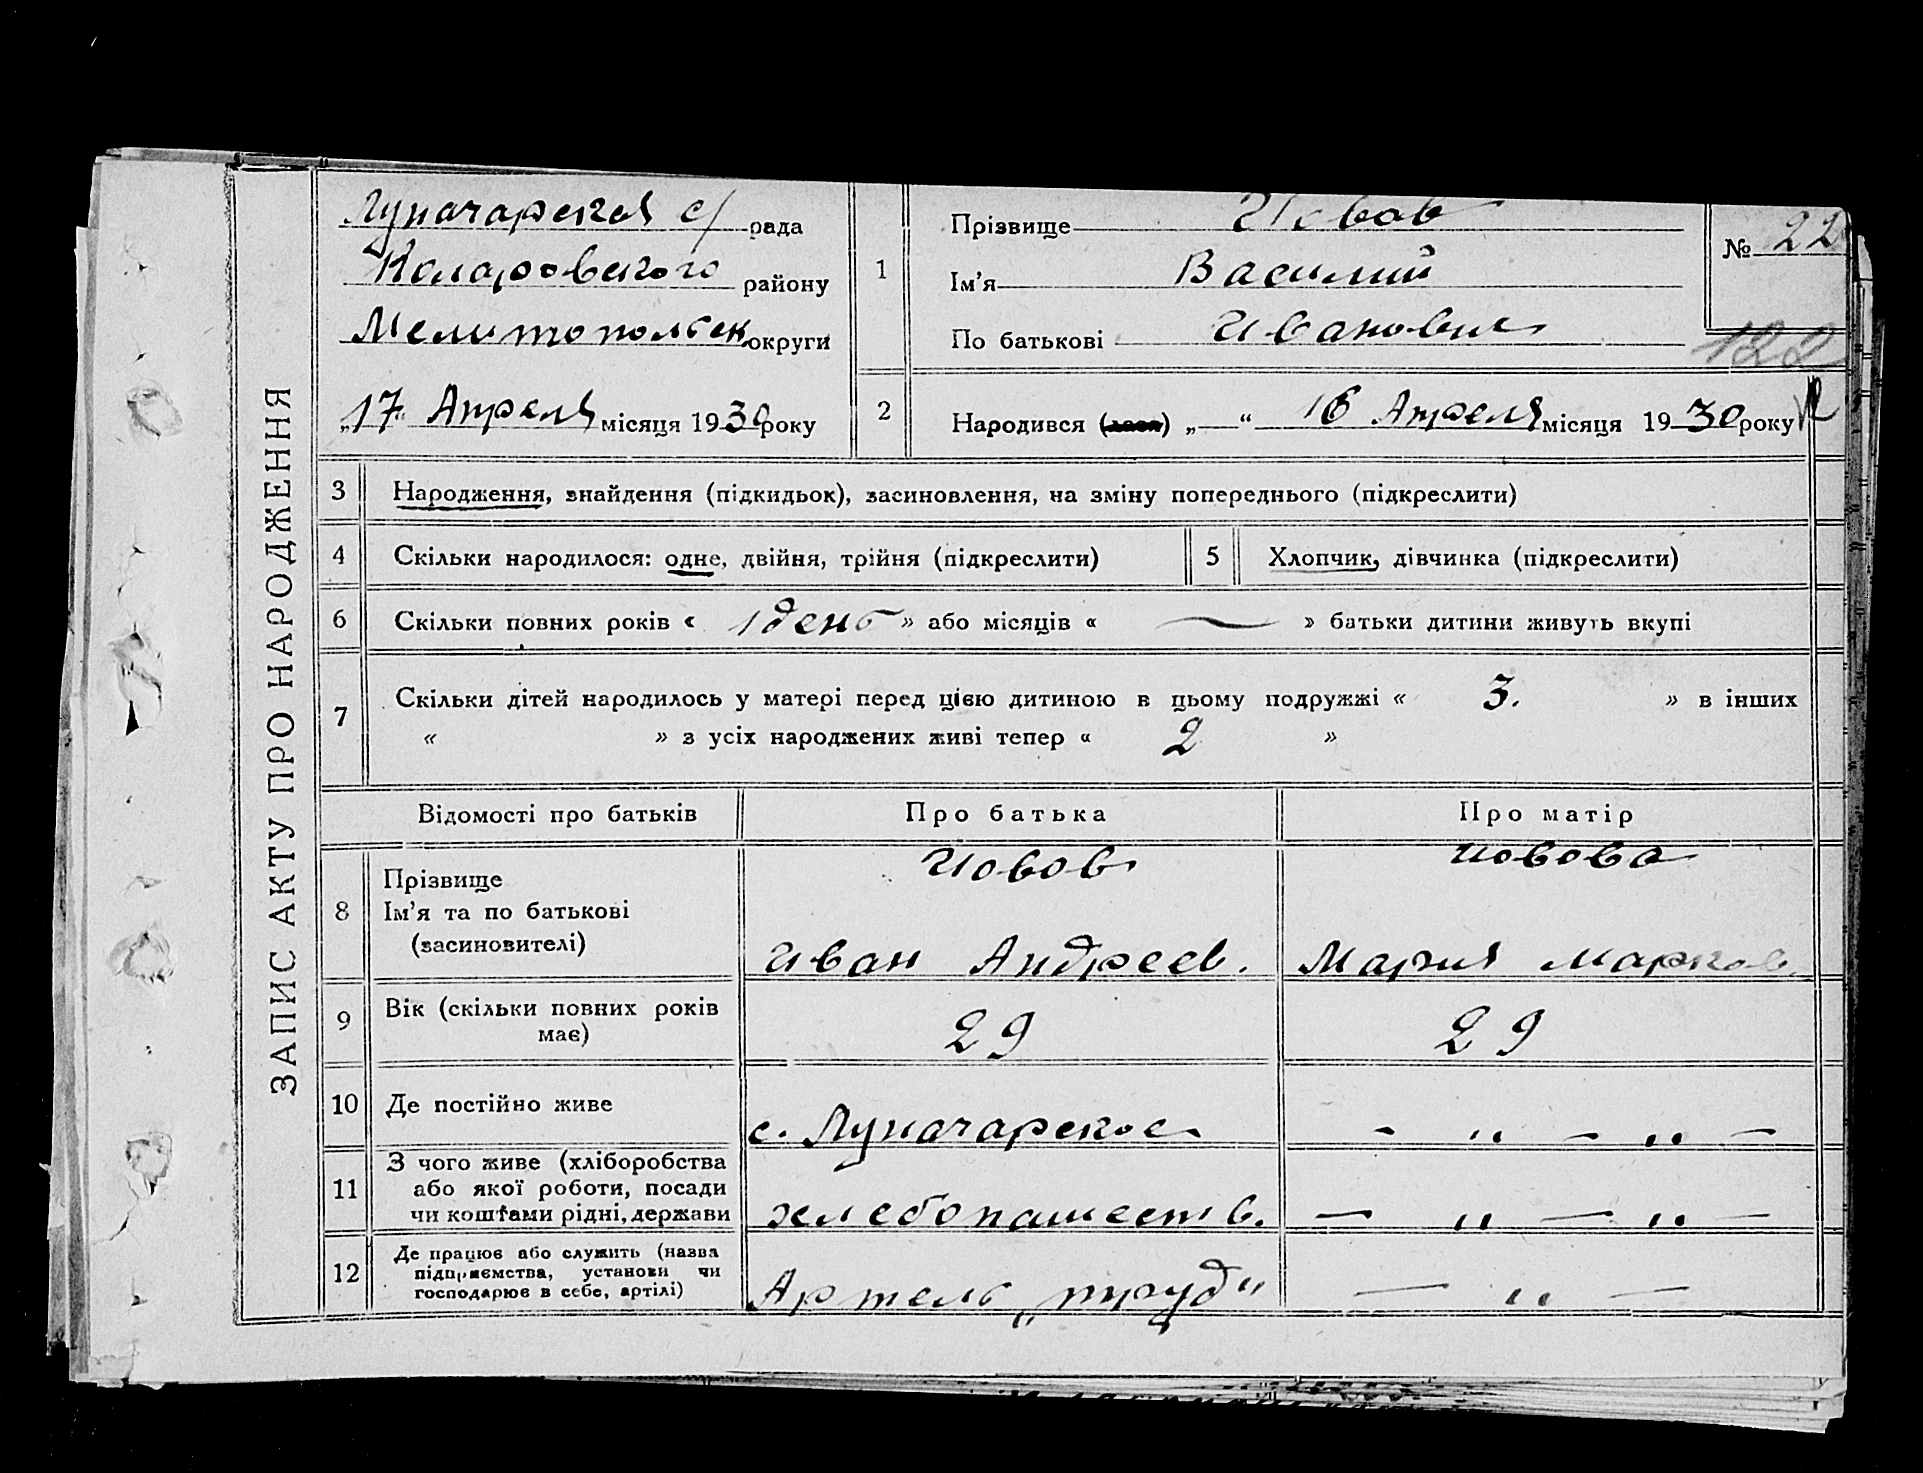 ЗАПИС АКТУ ПРО НАРОДЖЕННЯ
Луначарская с/ рада
Коларовского району
Мелитопольск округи
„17“ Апреля місяця 1930 року
1
Прізвище Иовов
Ім’я Василий
По батькові Иванович
№ 22
122
2
Народився (лася) „—“ 16 Апреля місяця 1930 року
3 Народження, знайдення (підкидьок), засиновлення, на зміну попереднього (підкреслити)
4 Скільки народилося: одне, двійня, трійня (підкреслити)
5 Хлопчик, дівчинка (підкреслити)
6 Скільки повних років « 1 день » або місяців « — » батьки дитини живуть вкупі
7 Скільки дітей народилось у матері перед цією дитиною в цьому подружжі « 3. » в інших
« » з усіх народжених живі тепер « 2 »
Відомості про батьків Про батька Про матір
8
Прізвище
Ім’я та по батькові
(засиновителі)
Иовов
Иван Андреев.
Иовова
Мария Марков.
9
Вік (скільки повних років
має)
29
29
10 Де постійно живе
с. Луначарское
- „ - „ -
11
З чого живе (хліборобства
або якої роботи, посади
чи коштами рідні, держави
хлебопашеств.
- „ - „ -
12
Де працює або служить (назва
підприємства, установи чи
господарює в себе, артілі)
Артель „труд“
- „ -